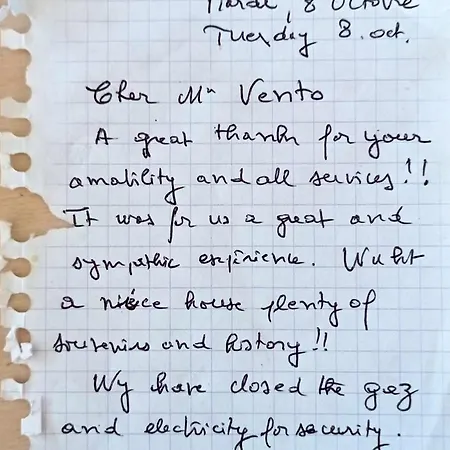 Mardi, 8 Octobre
Tuesday 8. oct.
Cher Mr Vento
A great thanks for your
amability and all services!!
It was for us a great and
sympathic expérience. What
a niece house plenty of
souvenirs and history!!
Wy have closed the gaz
and electricity for security.